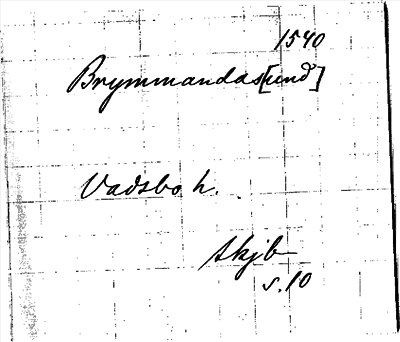 1540
Brymmandas[und]
Vadsbo h.
skjb
s. 10